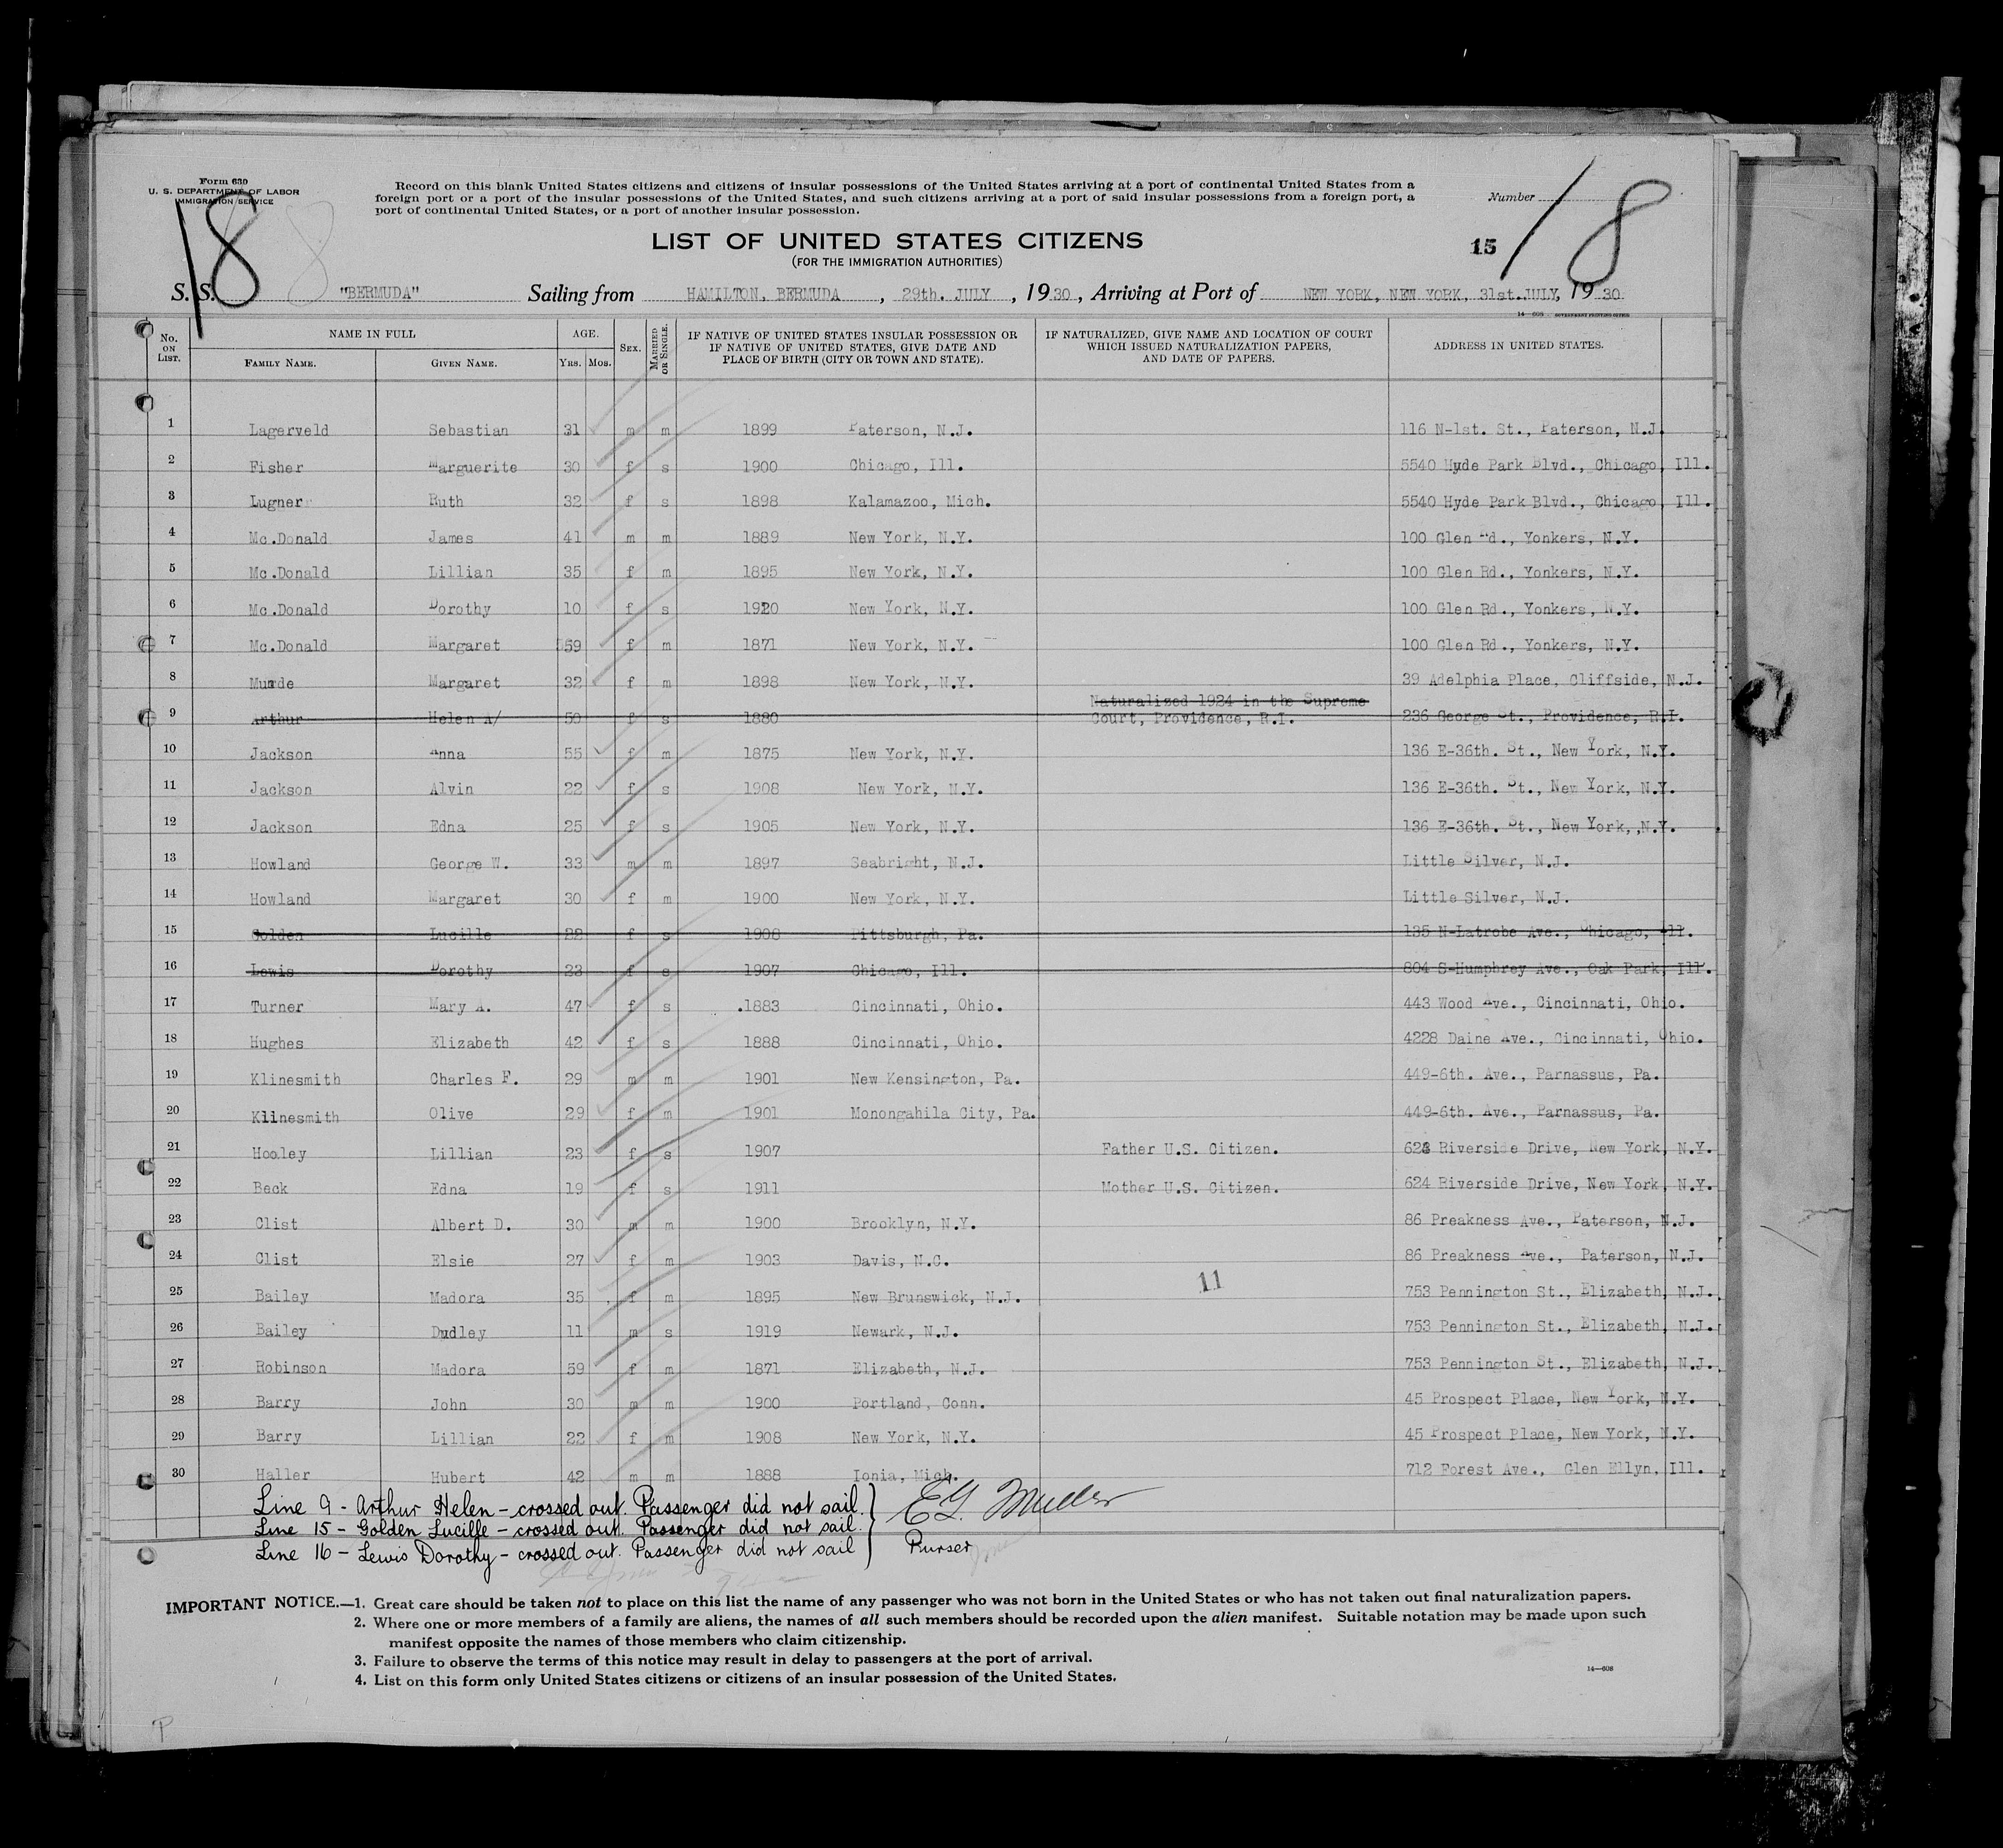 Form 630
U. S. DEPARTMENT OF LABOR
IMMIGRATION SERVICE
18
Record on this blank United States citizens and citizens of insular possessions of the United States arriving at a port of continental United States from a
foreign port or a port of the insular possessions of the United States, and such citizens arriving at a port of said insular possessions from a foreign port, a
port of continental United States, or a port of another insular possession.
Number
LIST OF UNITED STATES CITIZENS
(FOR THE IMMIGRATION AUTHORITIES)
15
18
S. S. "BERMUDA" Sailing from HAMILTON, BERMUDA, 29th. JULY, 1930, Arriving at Port of NEW YORK, NEW YORK, 31st. JULY, 1930
14—608 GOVERNMENT PRINTING OFFICE
No. ON LIST. NAME IN FULL FAMILY NAME. GIVEN NAME. AGE. YRS. MOS. SEX. MARRIED OR SINGLE. IF NATIVE OF UNITED STATES INSULAR POSSESSION OR IF NATIVE OF UNITED STATES, GIVE DATE AND PLACE OF BIRTH (CITY OR TOWN AND STATE). IF NATURALIZED, GIVE NAME AND LOCATION OF COURT WHICH ISSUED NATURALIZATION PAPERS, AND DATE OF PAPERS. ADDRESS IN UNITED STATES.
1 Lagerveld Sebastian 31 m m 1899 Paterson, N.J. 116 N-1st. St., Paterson, N.J.
2 Fisher Marguerite 30 f s 1900 Chicago, Ill. 5540 Hyde Park Blvd., Chicago, Ill.
3 Lugner Ruth 32 f s 1898 Kalamazoo, Mich. 5540 Hyde Park Blvd., Chicago, Ill.
4 Mc.Donald James 41 m m 1889 New York, N.Y. 100 Glen Rd., Yonkers, N.Y.
5 Mc.Donald Lillian 35 f m 1895 New York, N.Y. 100 Glen Rd., Yonkers, N.Y.
6 Mc.Donald Dorothy 10 f s 1920 New York, N.Y. 100 Glen Rd., Yonkers, N.Y.
7 Mc.Donald Margaret 59 f m 1871 New York, N.Y. 100 Glen Rd., Yonkers, N.Y.
8 Margaret 32 f m 1898 New York, N.Y. 39 Adelphia Place, Cliffside, N.J.
9 Arthur Helen A/ 50 f s 1880 Naturalized 1924 in the Supreme Court, Providence, R.I. 236 George St., Providence, R.I.
10 Jackson Anna 55 f m 1875 New York, N.Y. 136 E-36th. St., New York, N.Y.
11 Jackson Alvin 22 f s 1908 New York, N.Y. 136 E-36th. St., New York, N.Y.
12 Jackson Edna 25 f s 1905 New York, N.Y. 136 E-36th. St., New York,,N.Y.
13 Howland George W. 33 m m 1897 Seabright, N.J. Little Silver, N.J.
14 Howland Margaret 30 f m 1900 New York, N.Y. Little Silver, N.J.
15 Golden Lucille 22 f s 1908 Pittsburgh, Pa. 135 N-Latrobe Ave., Chicago, Ill.
16 Lewis Dorothy 23 f s 1907 Chicago, Ill. 804 S-Humphrey Ave., Oak Park, Ill.
17 Turner Mary A. 47 f s .1883 Cincinnati, Ohio. 443 Wood Ave., Cincinnati, Ohio.
18 Hughes Elizabeth 42 f s 1888 Cincinnati, Ohio. 4228 Daine Ave., Cincinnati, Ohio.
19 Klinesmith Charles F. 29 m m 1901 New Kensington, Pa. 449-6th. Ave., Parnassus, Pa.
20 Klinesmith Olive 29 f m 1901 Monongahila City, Pa. 449-6th. Ave., Parnassus, Pa.
21 Hooley Lillian 23 f s 1907 Father U.S. Citizen. 624 Riverside Drive, New York, N.Y.
22 Beck Edna 19 f s 1911 Mother U.S. Citizen. 624 Riverside Drive, New York, N.Y.
23 Clist Albert D. 30 m m 1900 Brooklyn, N.Y. 86 Preakness Ave., Paterson, N.J.
24 Clist Elsie 27 f m 1903 Davis, N.C. 86 Preakness Ave., Paterson, N.J.
11
25 Bailey Madora 35 f m 1895 New Brunswick, N.J. 753 Pennington St., Elizabeth, N.J.
26 Bailey Dudley 11 m s 1919 Newark, N.J. 753 Pennington St., Elizabeth, N.J.
27 Robinson Madora 59 f m 1871 Elizabeth, N.J. 753 Pennington St., Elizabeth, N.J.
28 Barry John 30 m m 1900 Portland, Conn. 45 Prospect Place, New York, N.Y.
29 Barry Lillian 22 f m 1908 New York, N.Y. 45 Prospect Place, New York, N.Y.
30 Haller Hubert 42 m m 1888 Ionia, Mich. 712 Forest Ave., Glen Ellyn, Ill.
Line 9 - Arthur Helen - crossed out. Passenger did not sail.
Line 15 - Golden Lucille - crossed out. Passenger did not sail.
Line 16 - Lewis Dorothy - crossed out. Passenger did not sail
Purser
IMPORTANT NOTICE.—1. Great care should be taken not to place on this list the name of any passenger who was not born in the United States or who has not taken out final naturalization papers.
2. Where one or more members of a family are aliens, the names of all such members should be recorded upon the alien manifest. Suitable notation may be made upon such
manifest opposite the names of those members who claim citizenship.
3. Failure to observe the terms of this notice may result in delay to passengers at the port of arrival.
4. List on this form only United States citizens or citizens of an insular possession of the United States.
14—608
P